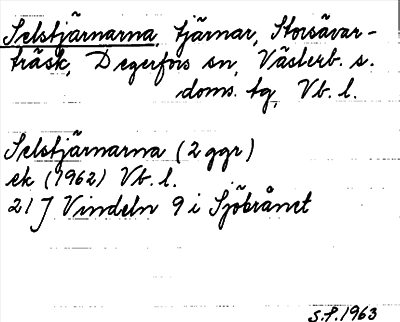 Selstjärnarna, tjärnar, Storsävar-
träsk, Degerfors sn, Västerb. s.
doms. tg, Vb. l.
Selstjärnarna (2 ggr)
ek (1962) Vb. l.
21J Vindeln 9 i Sjöbrånet
S.F. 1963